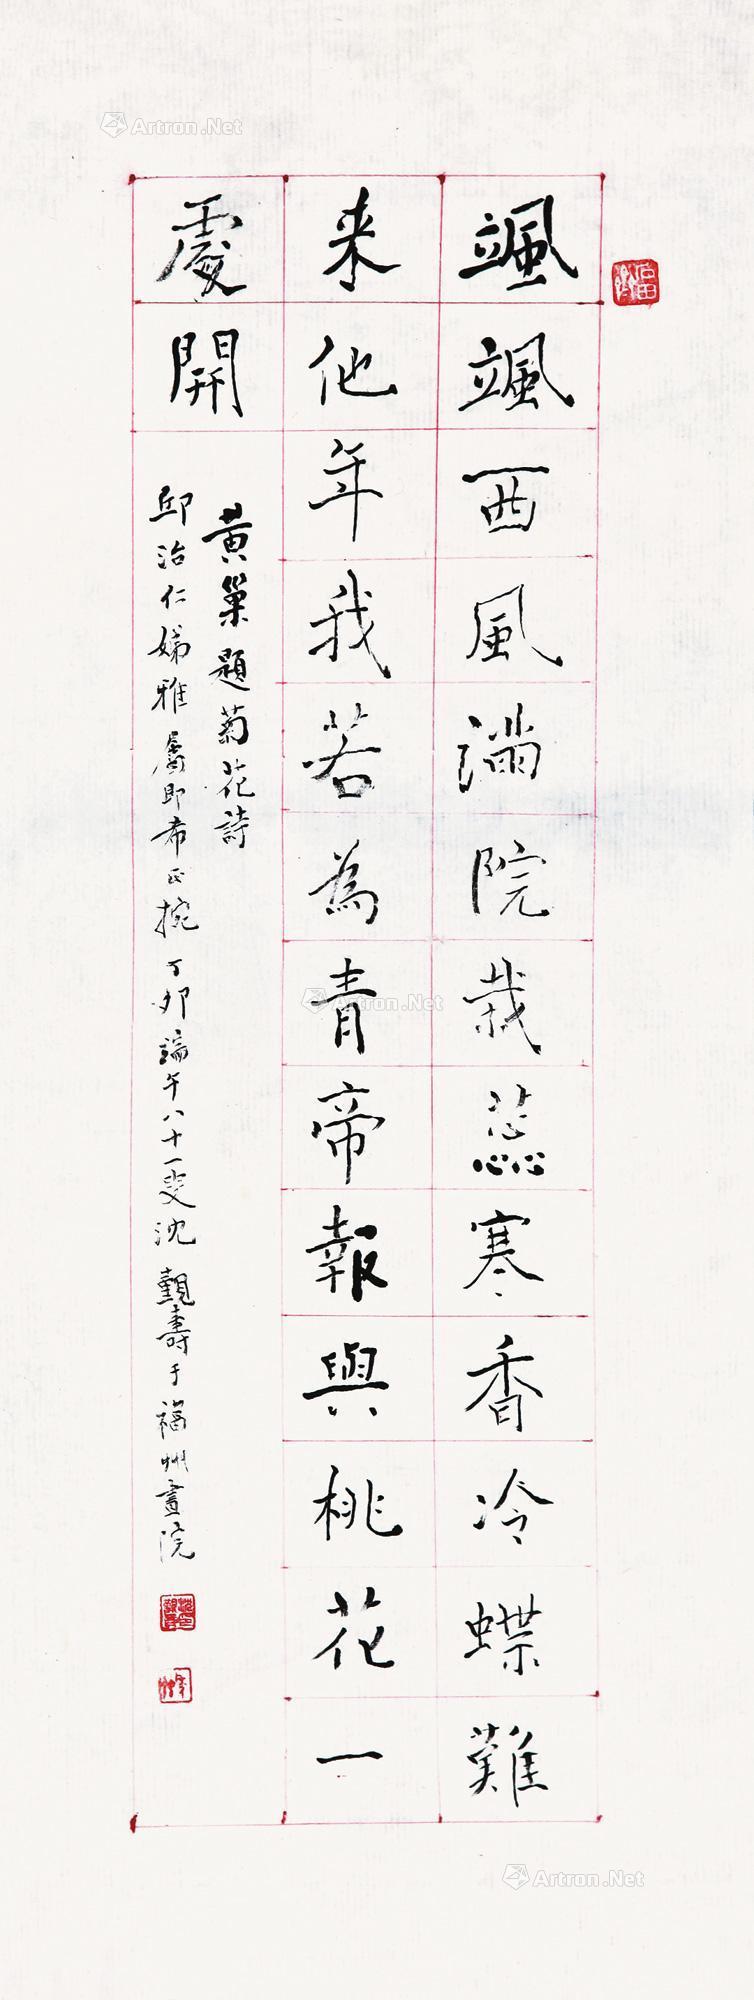 颯颯西風滿院栽蕊寒香冷蝶難
来他年我若為青帝報與桃花一
處開
黄巢題菊花詩
邱治仁娣雅屬即希正捥丁卯端午八十一叟沈觀壽于福州畫院
Artron.Net
Artron.Net
Artron.Net